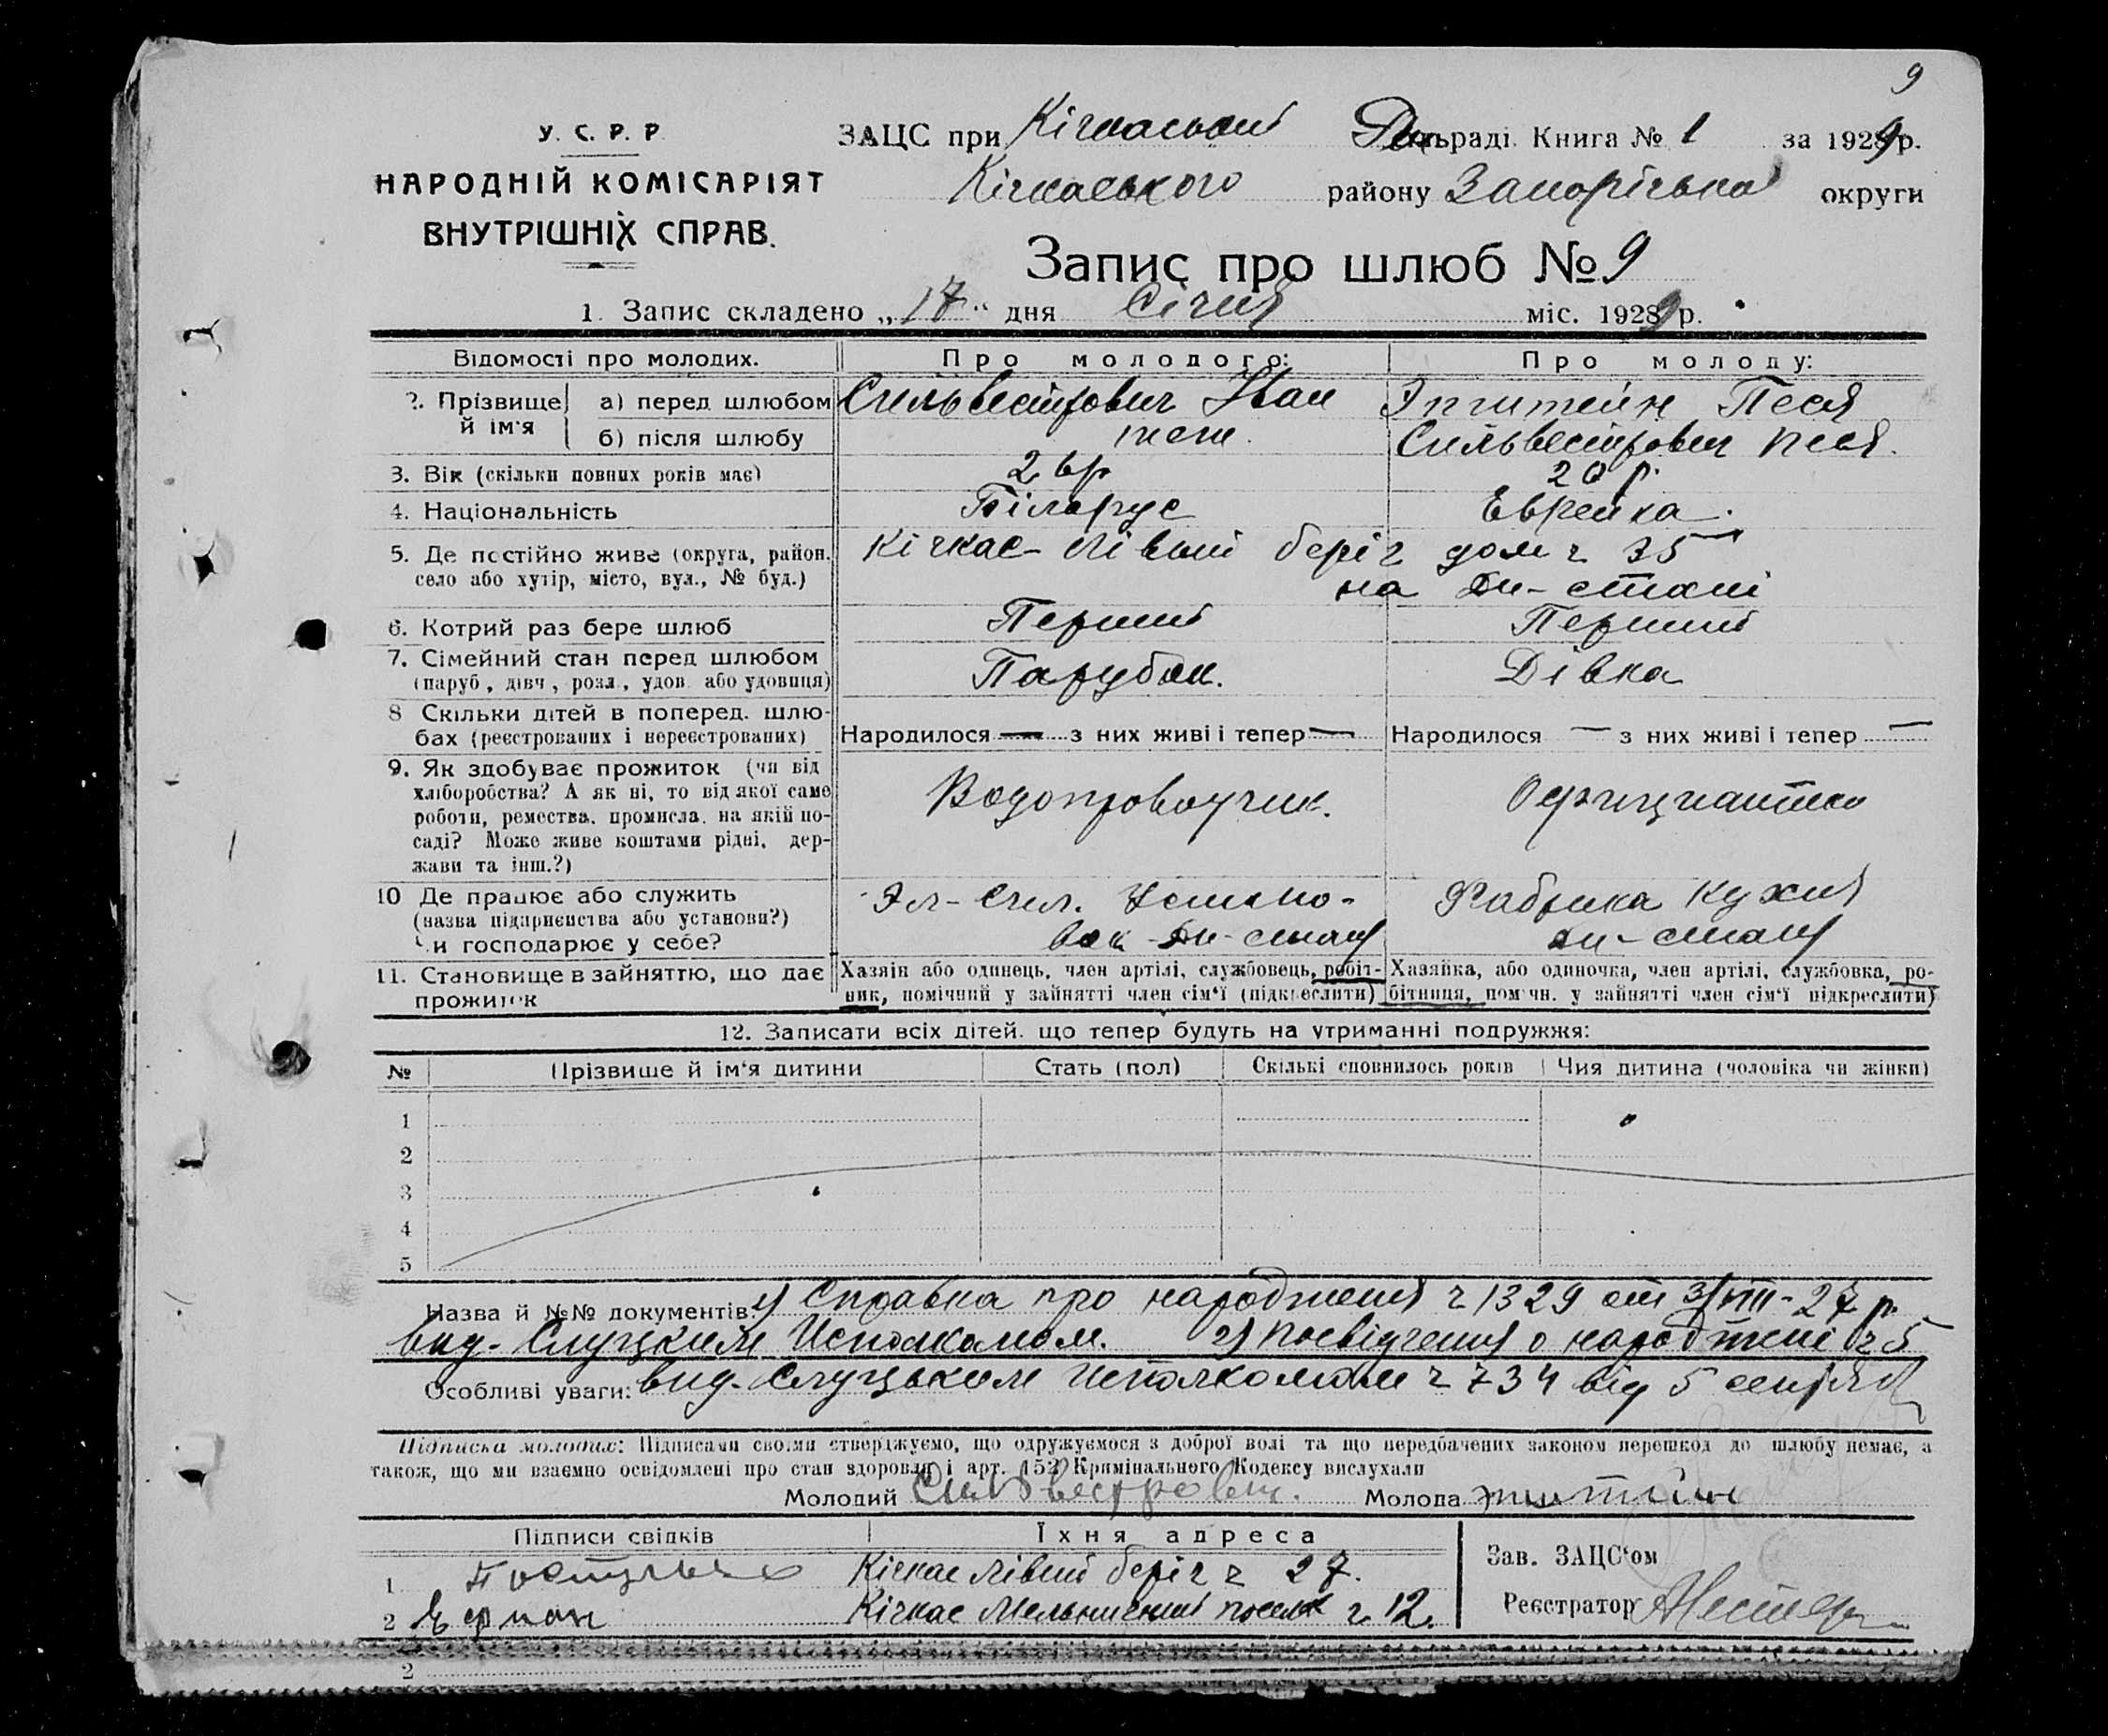 9
У. С. Р. Р.
НАРОДНІЙ КОМІСАРІЯТ
ВНУТРІШНІХ СПРАВ.
ЗАЦС при Кічкаський раді. Книга № 1 за 1929 р.
Кічкаського району Запорізької округи
Запис про шлюб № 9
1. Запис складено „17“ дня Січня міс. 1929 р.
Відомості про молодих. Про молодого: Про молоду:
2. Прізвище й ім'я
а) перед шлюбом Сильвестрович Іван Эпштейн Песя
б) після шлюбу теж. Сильвестрович Песя.
3. Вік (скільки повних років має) 26р 20 р.
4. Національність Білорус Еврейка.
5. Де постійно живе (округа, район. Кічкас- Лівий беріг дом ч 35
село або хутір, місто, вул., № буд.) на Дн-стані
6. Котрий раз бере шлюб Перший Перший
7. Сімейний стан перед шлюбом Парубок. Дівка
(паруб, дівч, розл., удов. або удовиця)
8 Скільки дітей в поперед. шлю-
бах (реєстрованих і нереєстрованих) Народилося — з них живі і тепер — Народилося — з них живі і тепер —
9. Як здобуває прожиток (чи від
хліборобства? А як ні, то від якої саме Водопроводчик. Официантка
роботи, ремества, промисла, на якій по-
саді? Може живе коштами рідні, дер-
жави та інш.?)
10 Де працює або служить Эл- Фабрика Кухня
(назва підприємства або установи?) Дн-стану Дн-стану
Чи господарює у себе?
11. Становище в зайняттю, що дає Хазяїн або одинець, член артілі, службовець, робіт- Хазяйка, або одиночка, член артілі, службовка, ро-
прожиток ник, помічний у зайнятті член сім'ї (підкреслити) бітниця, помічн. у зайнятті член сім'ї підкреслити)
12. Записати всіх дітей, що тепер будуть на утриманні подружжя:
№ Прізвище й ім'я дитини Стать (пол) Скількі сповнилось років Чия дитина (чоловіка чи жінки)
1
2
3
4
5
Назва й №№ документів: 1) Справка про народження ч 1329 от 3/VIII-27 р.
вид. Слуцким Исполкомом. 2) Посвідчення о народжені ч 5
Особливі уваги: вид. Слуцьким Исполкомом ч 734 від 5 сентря
Підписка молодих: Підписами своїми стверджуємо, що одружуємося з доброї волі та що передбачених законом перешкод до шлюбу немає, а
також, що ми взаємно освідомлені про стан здоровля і арт. 152 Кримінального Кодексу вислухали
Молодий Сильвестрович. Молода Эпштейн
Підписи свідків Їхня адреса
Зав. ЗАЦС'ом
1 Кічкас Лівий беріг ч 27.
2 Кічкас Мельничний посел ч 12.
Реєстратор
2